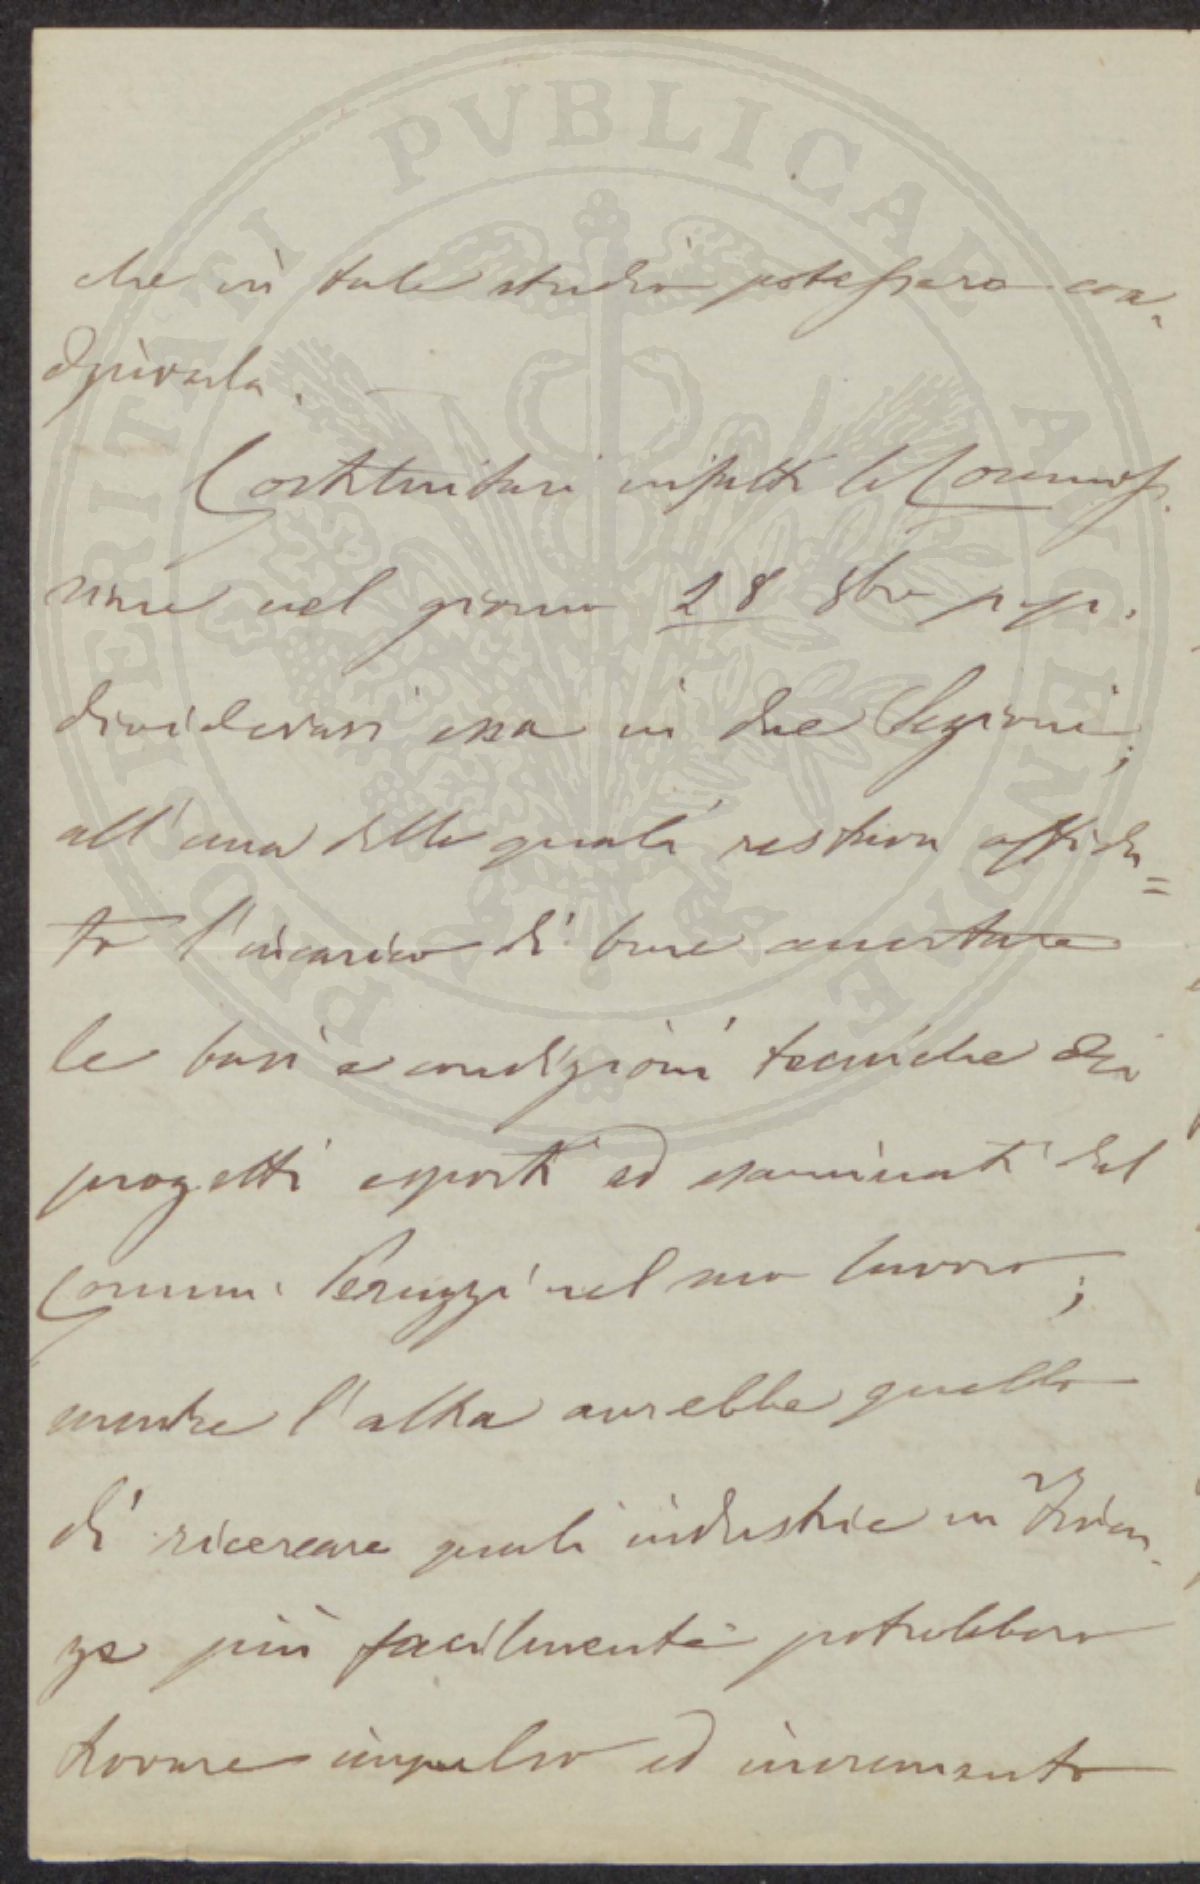 PROSPERITATI PVBLICAE AVGENDAE
che in tale studio potessero coa-
diuvarla.
Costituitasi infatti la Commiss.
nel giorno 28 8bre p.p.
dividevasi essa in due Sezioni;
all'una delle quali restava affida=
to l'incarico di bene accertare
le basi e condizioni tecniche dei
progetti esposti ed esaminati dal
Comm. Peruzzi nel suo lavoro;
mentre l'altra avrebbe quello
di ricercare quali industrie in Firen-
ze più facilmente potrebbero
trovare impulso ed incremento